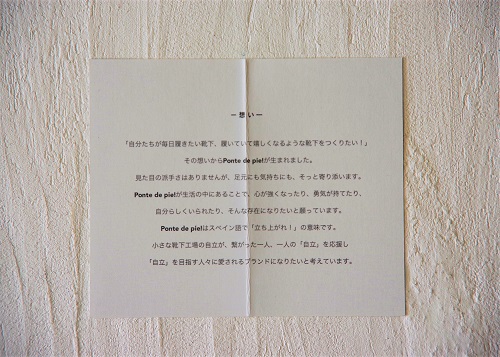 ー想いー
「自分たちが毎日履きたい靴下、履いていて嬉しくなるような靴下をつくりたい！」
その想いからPonte de pie!が生まれました。
見た目の派手さはありませんが、足元にも気持ちにも、そっと寄り添います。
Ponte de pie!が生活の中にあることで、心が強くなったり、勇気が持てたり、
自分らしくいられたり、そんな存在になりたいと願っています。
Ponte de pie!はスペイン語で「立ち上がれ！」の意味です。
小さな靴下工場の自立が、繋がった一人、一人の「自立」を応援し
「自立」を目指す人々に愛されるブランドになりたいと考えています。